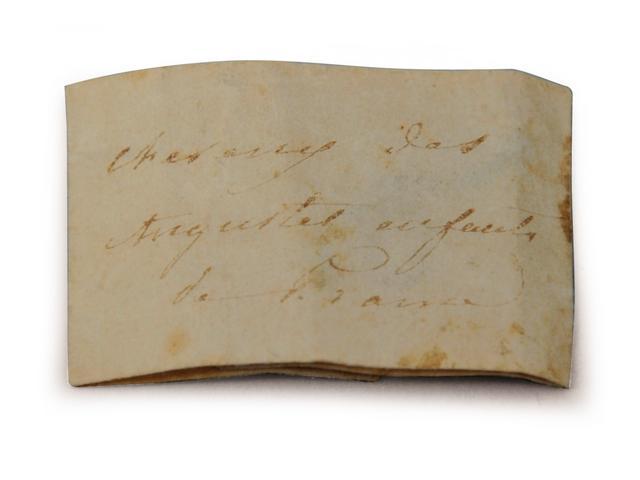 cheveux des
Augustes enfants
de France